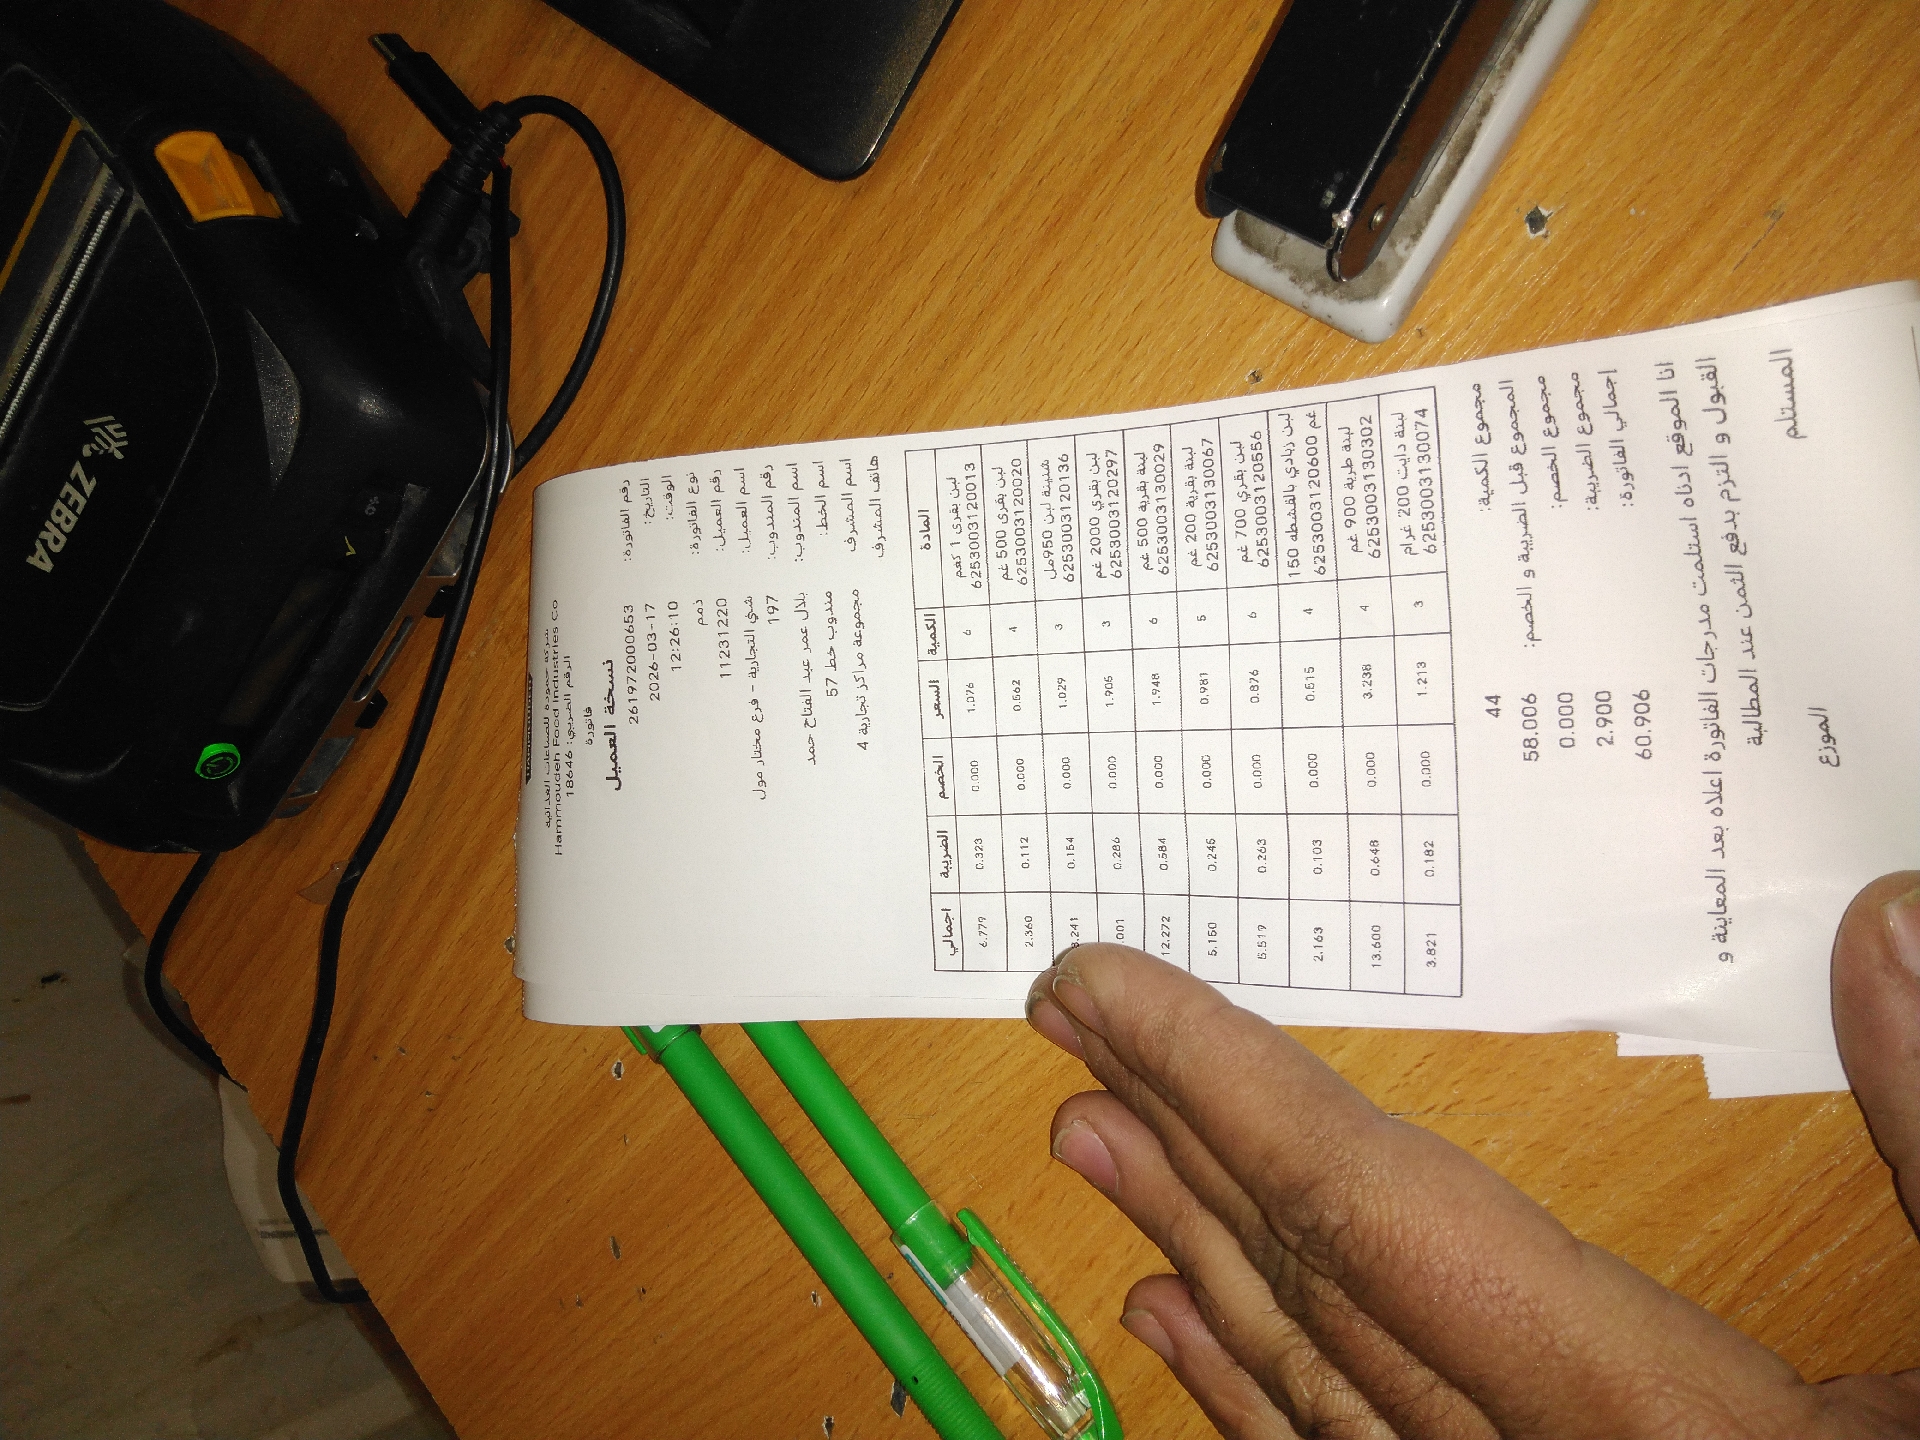 ZEBRA
شركة حمودة للصناعات الغذائية
Hammoudeh Food Industries Co
الرقم الضريبي: 18646
فاتورة
نسخة العميل
رقم الفاتورة: 261972000653
التاريخ: 2026-03-17
الوقت: 12:26:10
نوع الفاتورة: ذمم
رقم العميل: 11231220
اسم العميل: شي التجارية - فرع مختار مول
رقم المندوب: 197
اسم المندوب: بلال عمر عبد الفتاح حمد
اسم الخط: مندوب خط 57
اسم المشرف مجموعة مراكز تجارية 4
هاتف المشرف
المادة الكمية السعر الخصم الضريبة اجمالي
لبن بقري 1 كغم
6253003120013 6 1.076 0.000 0.323 6.779
لبن بقري 500 غم
6253003120020 4 0.562 0.000 0.112 2.360
شنينة لبن 950مل
6253003120136 3 1.029 0.000 0.154 3.241
لبن بقري 2000 غم
6253003120297 3 1.905 0.000 0.286 .001
لبنة بقرية 500 غم
6253003130029 6 1.948 0.000 0.584 12.272
لبنة بقرية 200 غم
6253003130067 5 0.981 0.000 0.245 5.150
لبن بقري 700 غم
6253003120556 6 0.876 0.000 0.263 5.519
لبن زبادي بالقشطه 150
غم 6253003120600 4 0.515 0.000 0.103 2.163
لبنة طرية 900 غم
6253003130302 4 3.238 0.000 0.648 13.600
لبنة دايت 200 غرام
6253003130074 3 1.213 0.000 0.182 3.821
مجموع الكمية: 44
المجموع قبل الضريبة و الخصم: 58.006
مجموع الخصم: 0.000
مجموع الضريبة: 2.900
اجمالي الفاتورة: 60.906
انا الموقع ادناه استلمت مدرجات الفاتورة اعلاه بعد المعاينة و
القبول و التزم بدفع الثمن عند المطالبة
المستلم الموزع